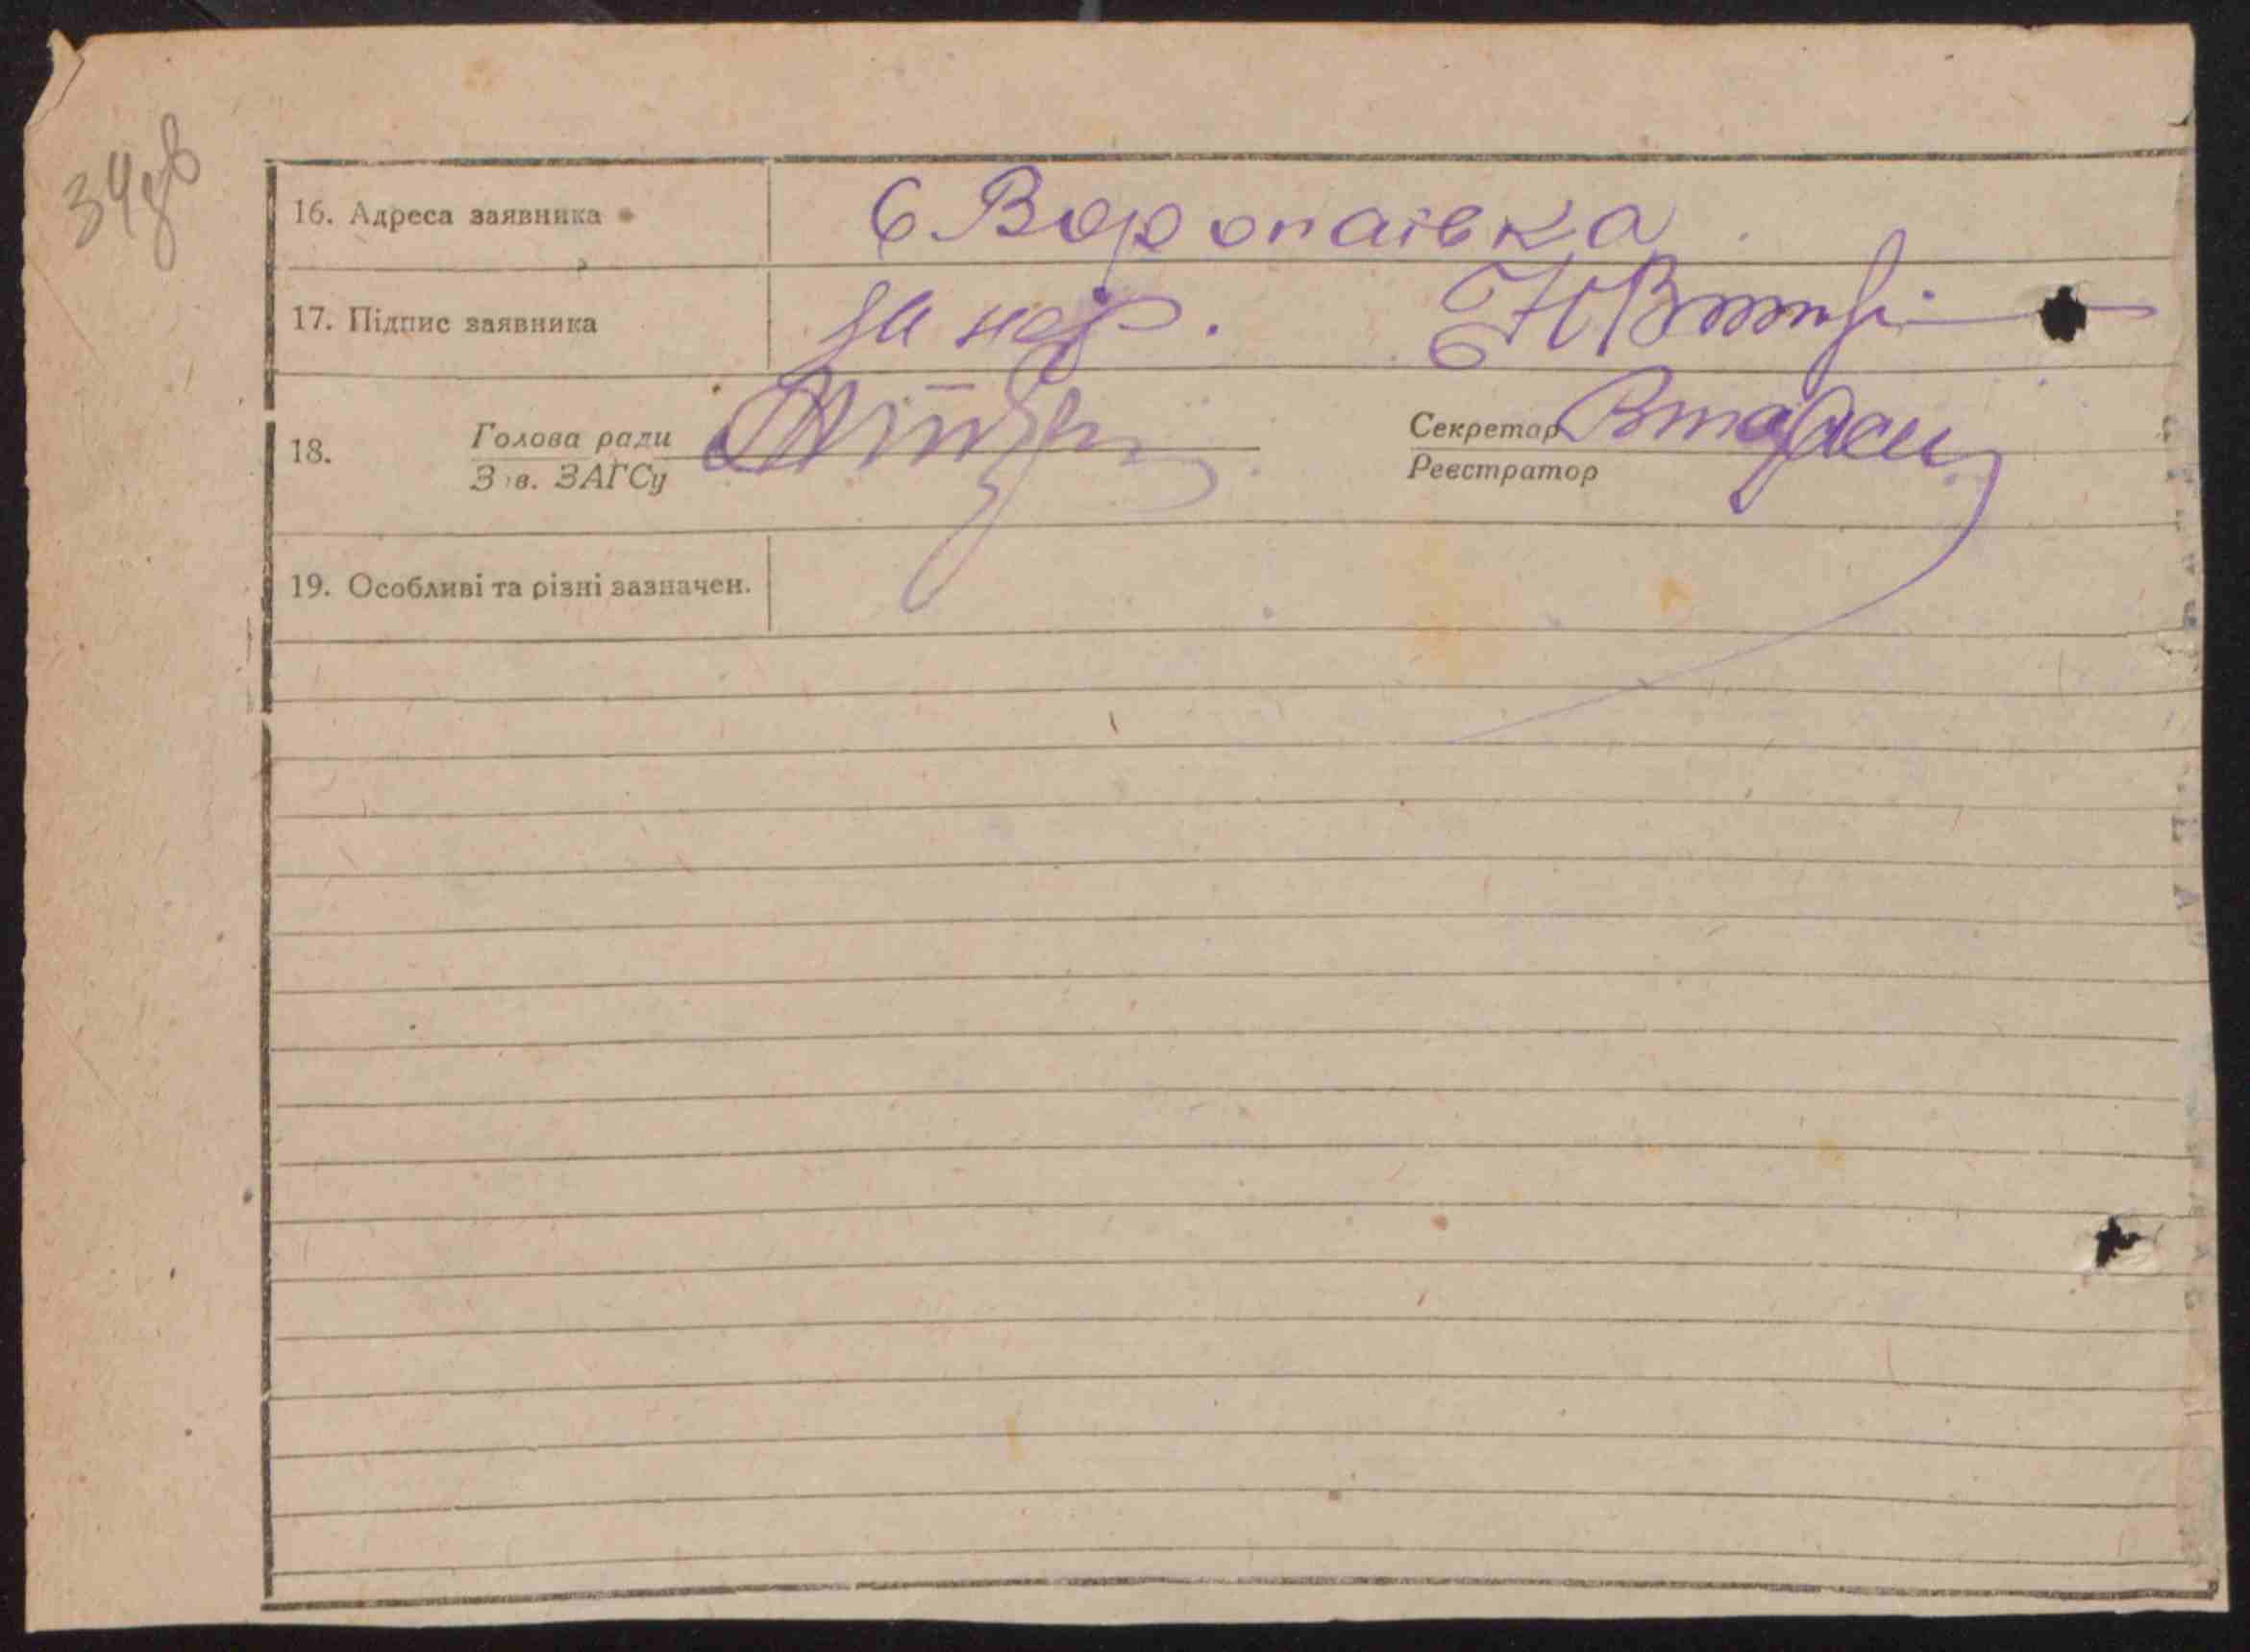 34зв
16. Адреса заявника С Воропаївка
17. Підпис заявника За нєгр.
18. Голова ради Секретар
Зав. ЗАГСу Реєстратор
19. Особливі та різні зазначен.